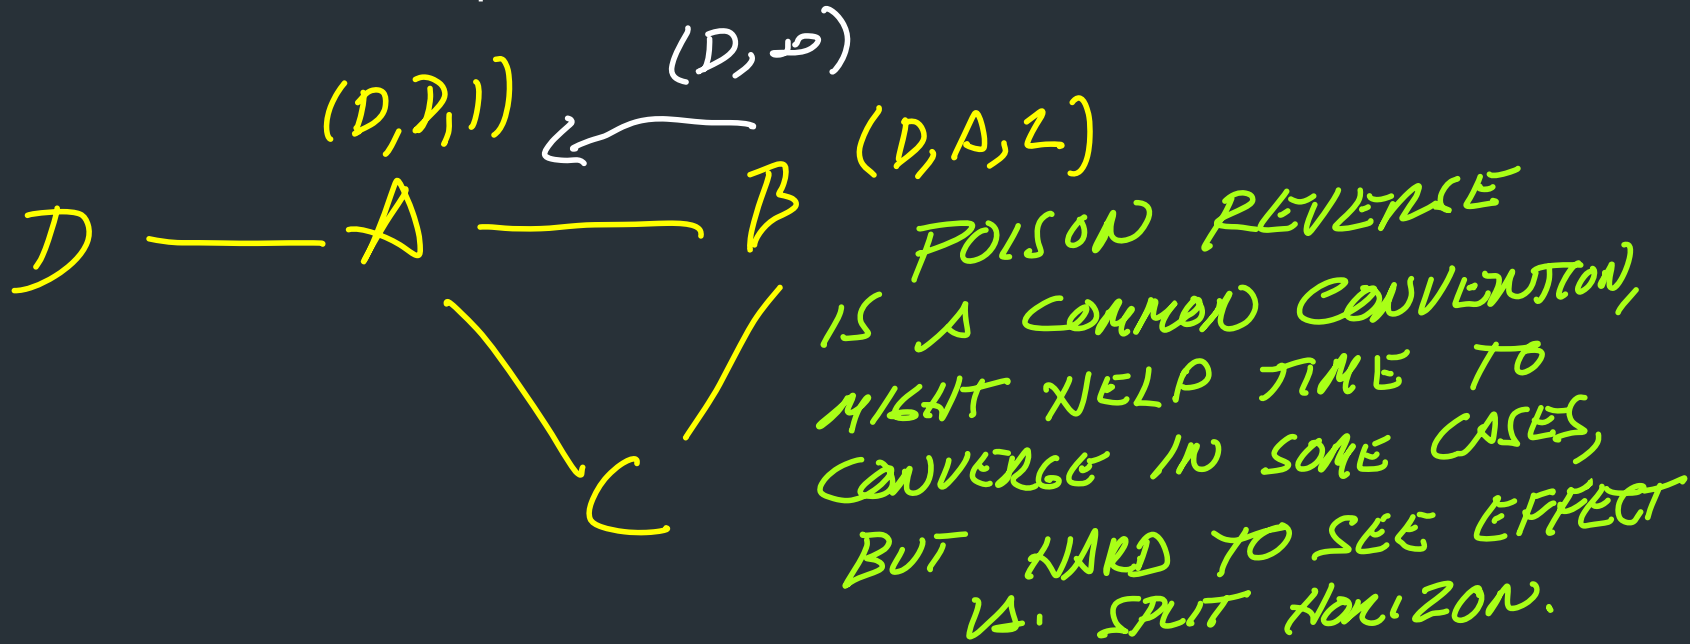 (D, ∞)
(D, D, 1)
(D, A, 2)
D
A
B
C
POISON REVERSE
IS A COMMON CONVENTION,
MIGHT HELP TIME TO
CONVERGE IN SOME CASES,
BUT HARD TO SEE EFFECT
VS. SPLIT HORIZON.